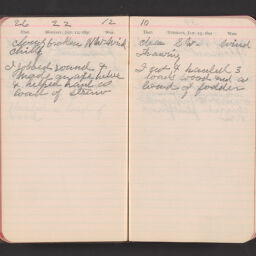 26 22 12
Ther. Monday, Jan. 12, 1891 Wea.
Cloudy broken N W Wind
chilly
I jobbed round &
made an ax helve
& helped haul as
load of straw
10
Ther. Tuesday, Jan. 13, 1891 Wea.
clear S W. wind
Thawing
I cut & hauled 3
loads wood and a
load of fodder